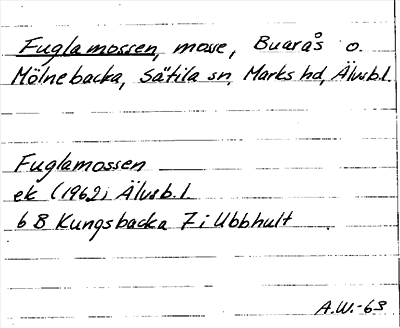 Fuglamossen, mosse, Buarås o.
Mölnebacka, Sätila sn, Marks hd, Älvsb.l.
Fuglamossen
ek (1962) i Älvsb.l.
6 B Kungsbacka 7 i Ubbhult
A.W.-63